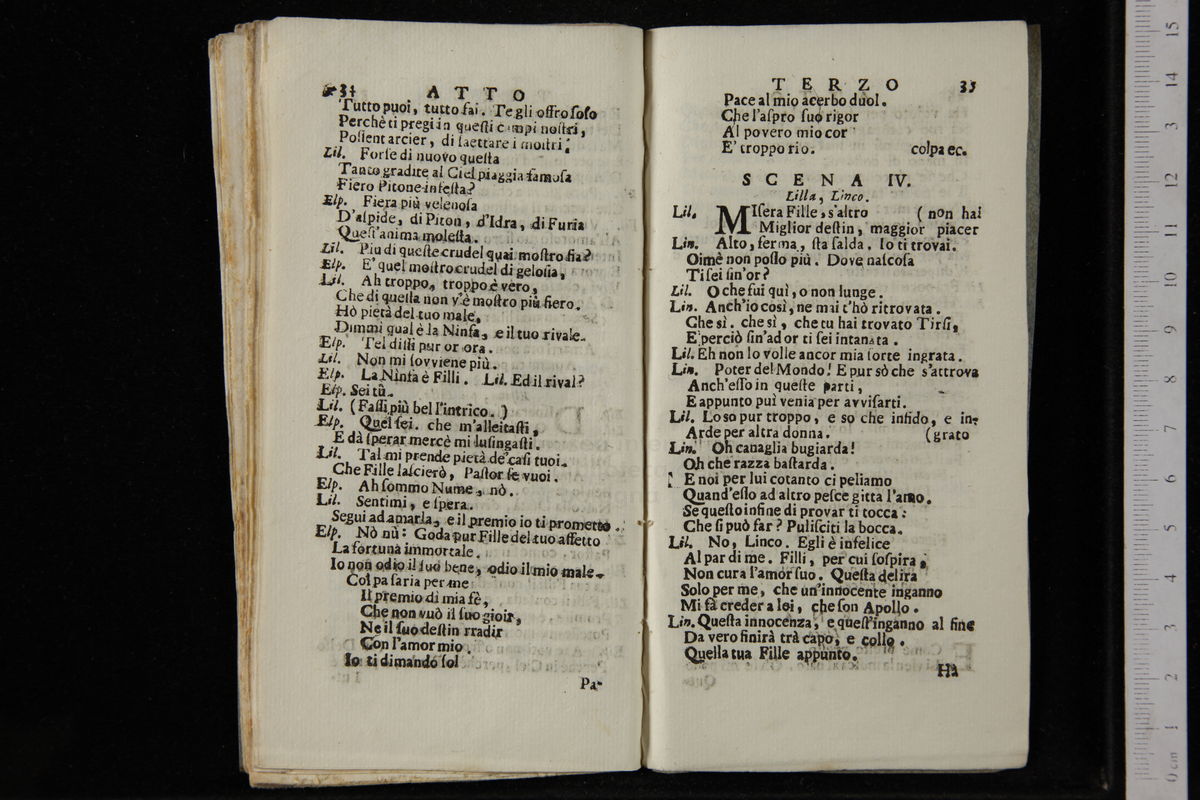 34 ATTO
Tutto puoi, tutto fai. Te gli offro ſolo
Perchè ti pregi in queſti campi noſtri,
Poſſent arcier, di ſaettare i moſtri.
Lil. Forſe di nuovo queſta
Tanto gradite al Ciel piaggia famoſa
Fiero Pitone infeſta?
Elp. Fiera più velenoſa
D'aſpide, di Piton, d'Idra, di Furia
Queſt'anima moleſta.
Lil. Piu di queſte crudel quai moſtro ſia?
Elp. E' quel moſtro crudel di geloſia,
Lil. Ah troppo, troppo è vero,
Che di quella non v'è moſtro più fiero.
Hò pietà del tuo male,
Dimmi qual è la Ninfa, e il tuo rivale.
Elp. Tel diſſi pur or ora.
Lil. Non mi ſovviene più.
Elp. La Ninfa è Filli. Lil. Ed il rival?
Elp. Sei tù.
Lil. (Faſſi più bel l'intrico.)
Elp. Quel ſei. che m'alleitaſti,
E dà ſperar mercè mi luſingaſti.
Lil. Tal mi prende pietà de' caſi tuoi.
Che Fille laſcierò, Paſtor ſe vuoi.
Elp. Ah ſommo Nume, nò.
Lil. Sentimi, e ſpera.
Segui ad amarla, e il premio io ti prometto.
Elp. Nò nù: Goda pur Fille del tuo affetto
La fortuna immortale.
Io non odio il ſuo bene, odio il mio male.
Colpa ſaria per me
Il premio di mia fè,
Che non vuò il ſuo gioir,
Ne il ſuo deſtin rradir
Con l'amor mio.
Io ti dimando ſol
Pa-
TERZO 35
Pace al mio acerbo duol.
Che l'aſpro ſuo rigor
Al povero mio cor
E' troppo rio. colpa ec.
SCENA IV.
Lilla, Linco.
Lil. MIſera Fille, s'altro ( non hai
Miglior deſtin, maggior piacer
Lin. Alto, ferma, ſta ſalda. Io ti trovai.
Oimè non poſſo più. Dove naſcoſa
Ti ſei ſin'or?
Lil. O che fui quì, o non lunge.
Lin. Anch'io così, ne mai t'hò ritrovata.
Che sì. che sì, che tu hai trovato Tirſi,
E perciò ſin'ad or ti ſei intanata.
Lil. Eh non lo volle ancor mia ſorte ingrata.
Lin. Poter del Mondo! E pur sò che s'attrova
Anch'eſſo in queſte parti,
E appunto puì venia per avviſarti.
Lil. Lo so pur troppo, e so che infido, e in-
Arde per altra donna. (grato
Lin. Oh canaglia bugiarda!
Oh che razza baſtarda.
E noi per lui cotanto ci peliamo
Quand'eſſo ad altro peſce gitta l'amo.
Se queſto infine di provar ti tocca:
Che ſi può far? Puliſciti la bocca.
Lil. No, Linco. Egli è infelice
Al par di me. Filli, per cui ſoſpira,
Non cura l'amor ſuo. Queſta delira
Solo per me, che un'innocente inganno
Mi fà creder a lei, che ſon Apollo.
Lin. Queſta innocenza, e queſt'inganno al fine
Da vero finirà trà capo, e collo.
Quella tua Fille appunto.
Hà